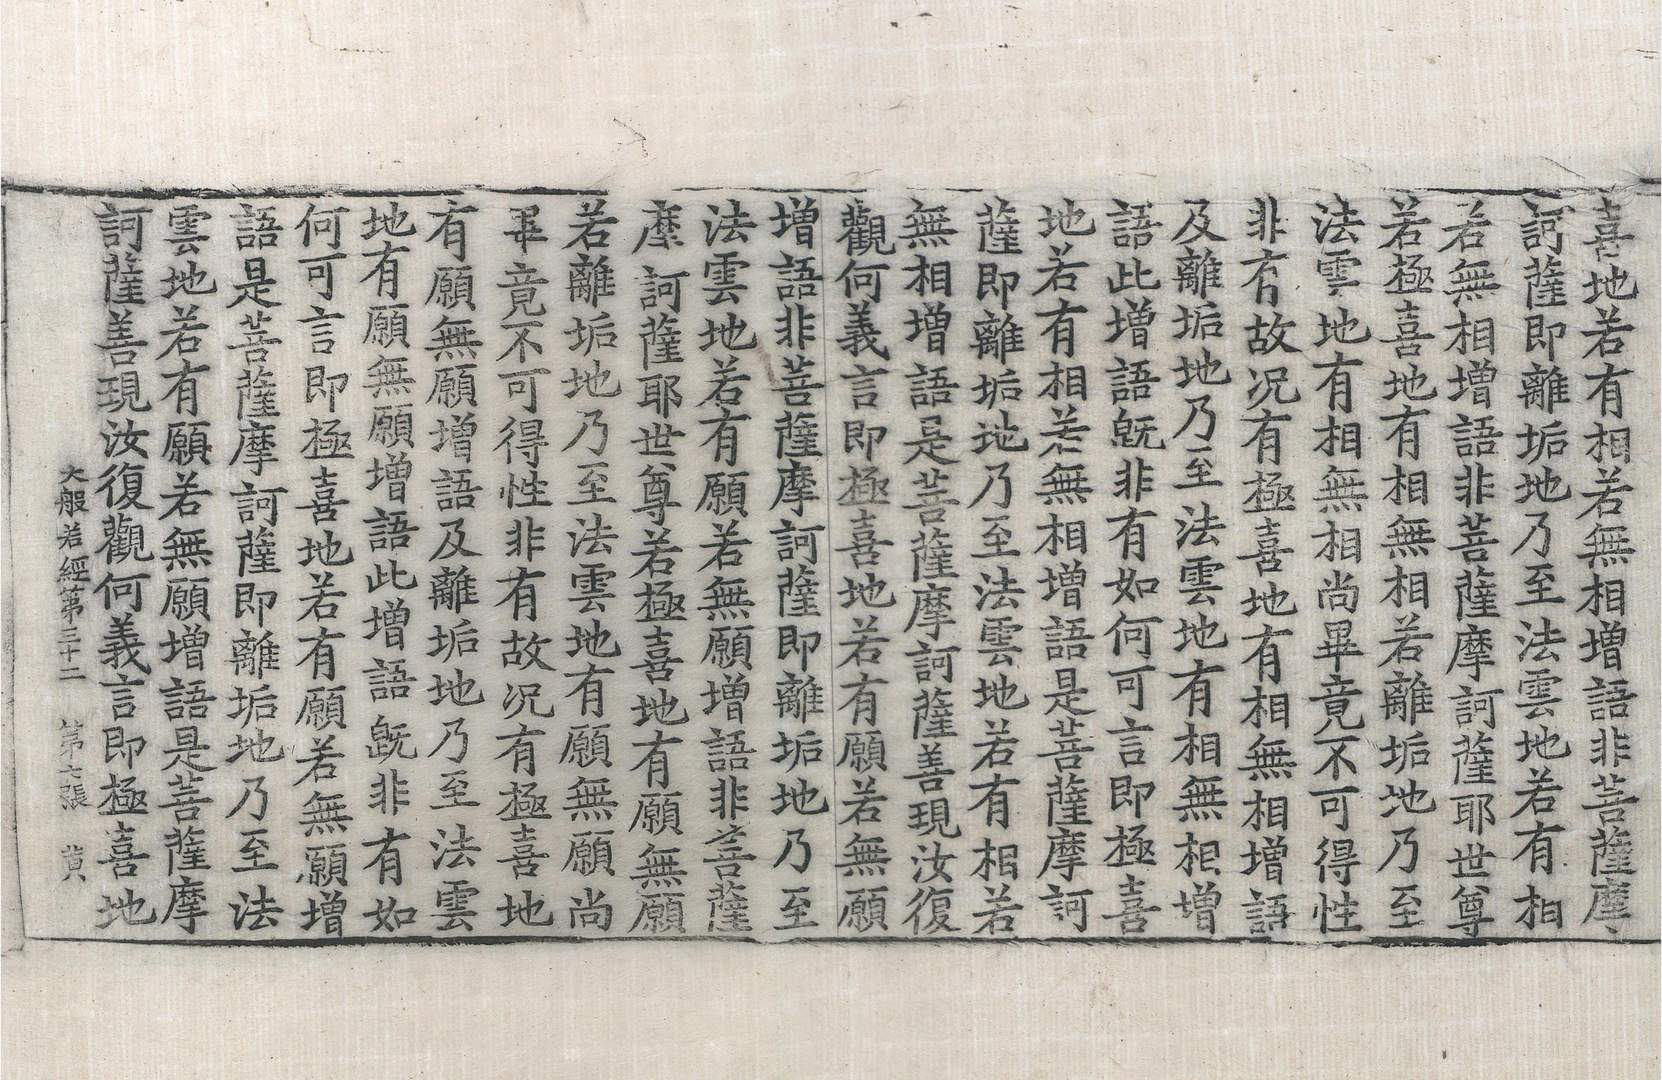 喜地若有相若無相增語非菩薩摩
訶薩即離垢地乃至法雲地若有相
若無相增語非菩薩摩訶薩耶世尊
若極喜地有相無相若離垢地乃至
法雲地有相無相尚畢竟不可得性
非有故况有極喜地有相無相增語
及離垢地乃至法雲地有相無相增
語此增語旣非有如何可言即極喜
地若有相若無相增語是菩薩摩訶
薩即離垢地乃至法雲地若有相若
無相增語是菩薩摩訶薩善現汝復
觀何義言即極喜地若有願若無願
增語非菩薩摩訶薩即離垢地乃至
法雲地若有願若無願增語非菩薩
摩訶薩耶世尊若極喜地有願無願
若離垢地乃至法雲地有願無願尚
畢竟不可得性非有故况有極喜地
有願無願增語及離垢地乃至法雲
地有願無願增語此增語旣非有如
何可言即極喜地若有願若無願增
語是菩薩摩訶薩即離垢地乃至法
雲地若有願若無願增語是菩薩摩
訶薩善現汝復觀何義言即極喜地
大般若經第三十二 第七張 黄